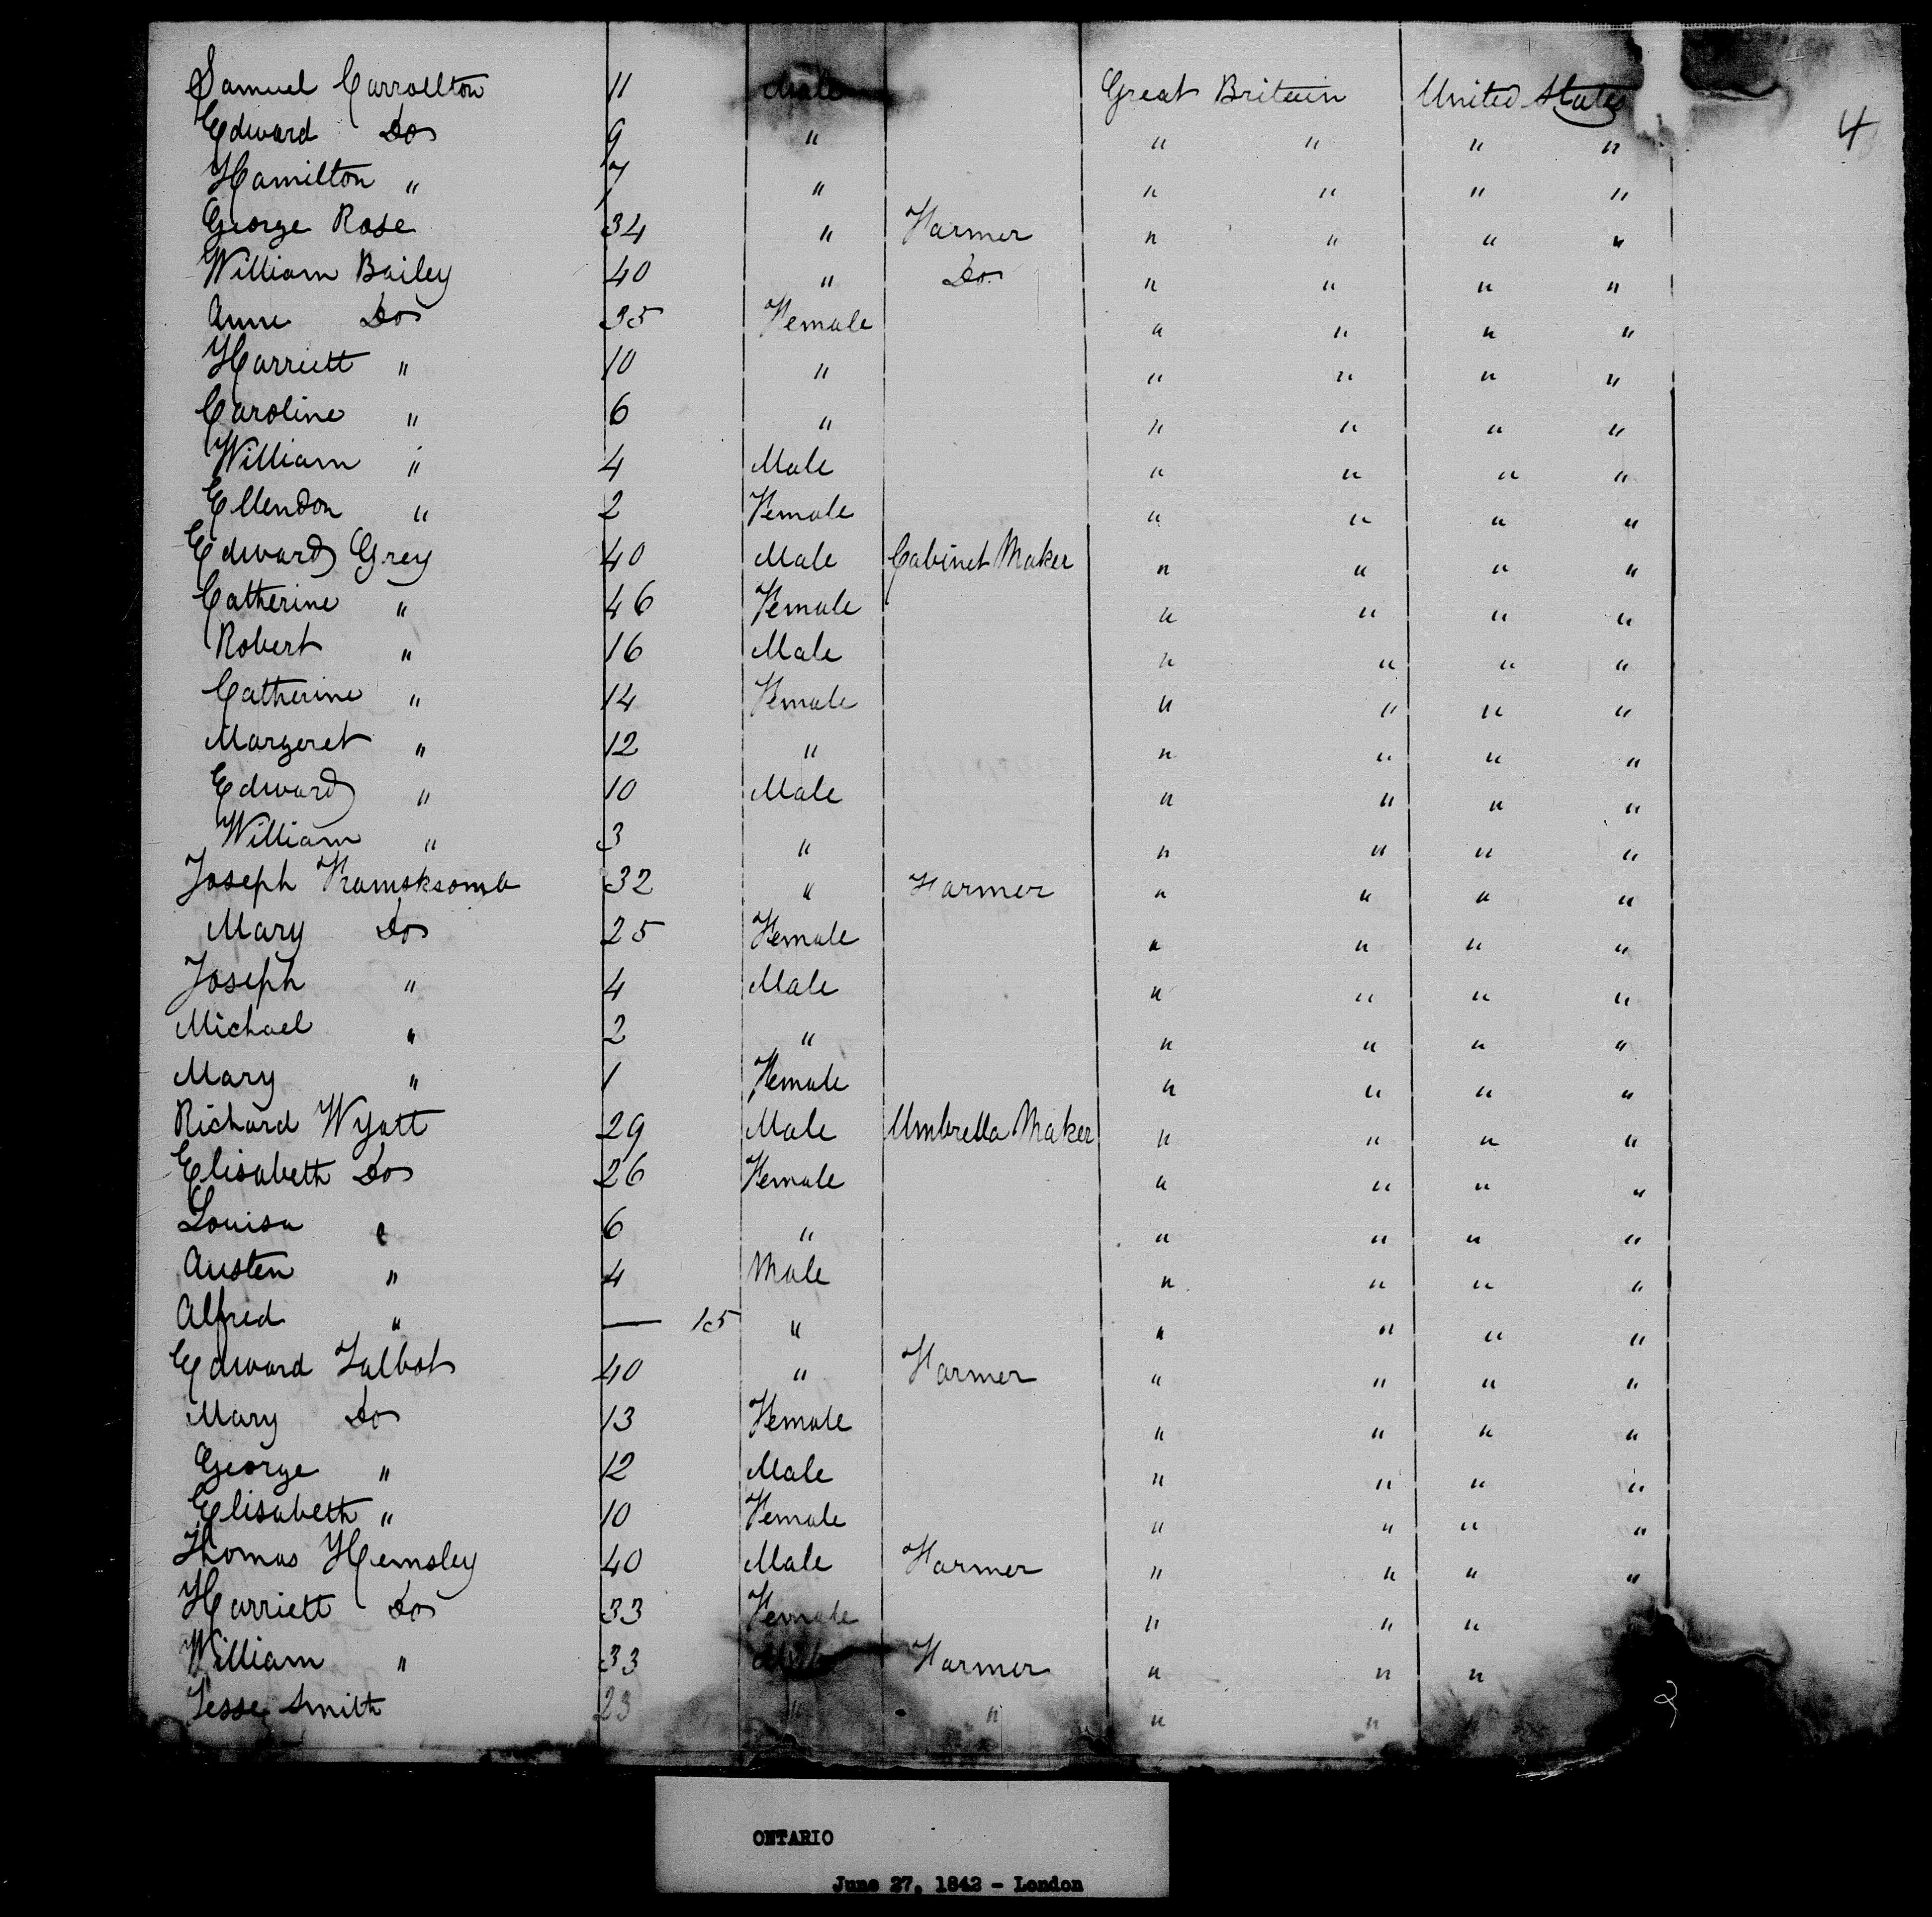 Samuel Carrollton 11 Male Great Britain United States
4
Edward Do 9 " " " " "
Hamilton " 7 " " " " "
George Rose 34 " Farmer " " " "
William Bailey 40 " Do " " " "
Anne Do 35 Female " " " "
Harriett " 10 " " " " "
Caroline " 6 " " " " "
William " 4 Male " " " "
Ellendon " 2 Female " " " "
Edward Grey 40 Male Cabinet Maker " " " "
Catherine " 46 Female " " " "
Robert " 16 Male " " " "
Catherine " 14 Female " " " "
Margeret " 12 " " " " "
Edward " 10 Male " " " "
William " 3 " " " " "
Joseph 32 " Farmer " " " "
Mary Do 25 Female " " " "
Joseph " 4 Male " " " "
Michael " 2 " " " " "
Mary " 1 Female " " " "
Richard Wyatt 29 Male Umbrella Maker " " " "
Elisabeth Do 26 Female " " " "
Louisa " 6 " " " " "
Austen " 4 Male " " " "
Alfred " — 15 " " " " "
Edward Talbot 40 " Farmer " " " "
Mary Do 13 Female " " " "
George " 12 Male " " " "
Elisabeth " 10 Female " " " "
Thomas Hemsley 40 Male Farmer " " " "
Harriett Do 33 Female " " "
William " 33 Male Farmer " " "
Jesse Smith 23 " " " "
2
ONTARIO
June 27, 1842 - London